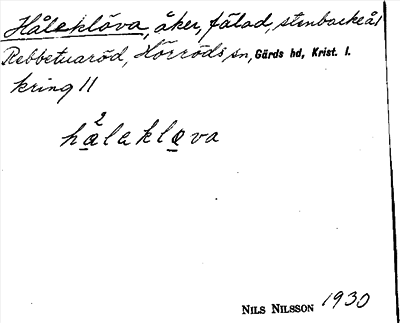 Håleklöva, åker, fälad, stenbackeås
Rebbetuaröd, Hörröds sn, Gärds hd, Krist. l.
kring 11
2
halekløva
NILS NILSSON 1930